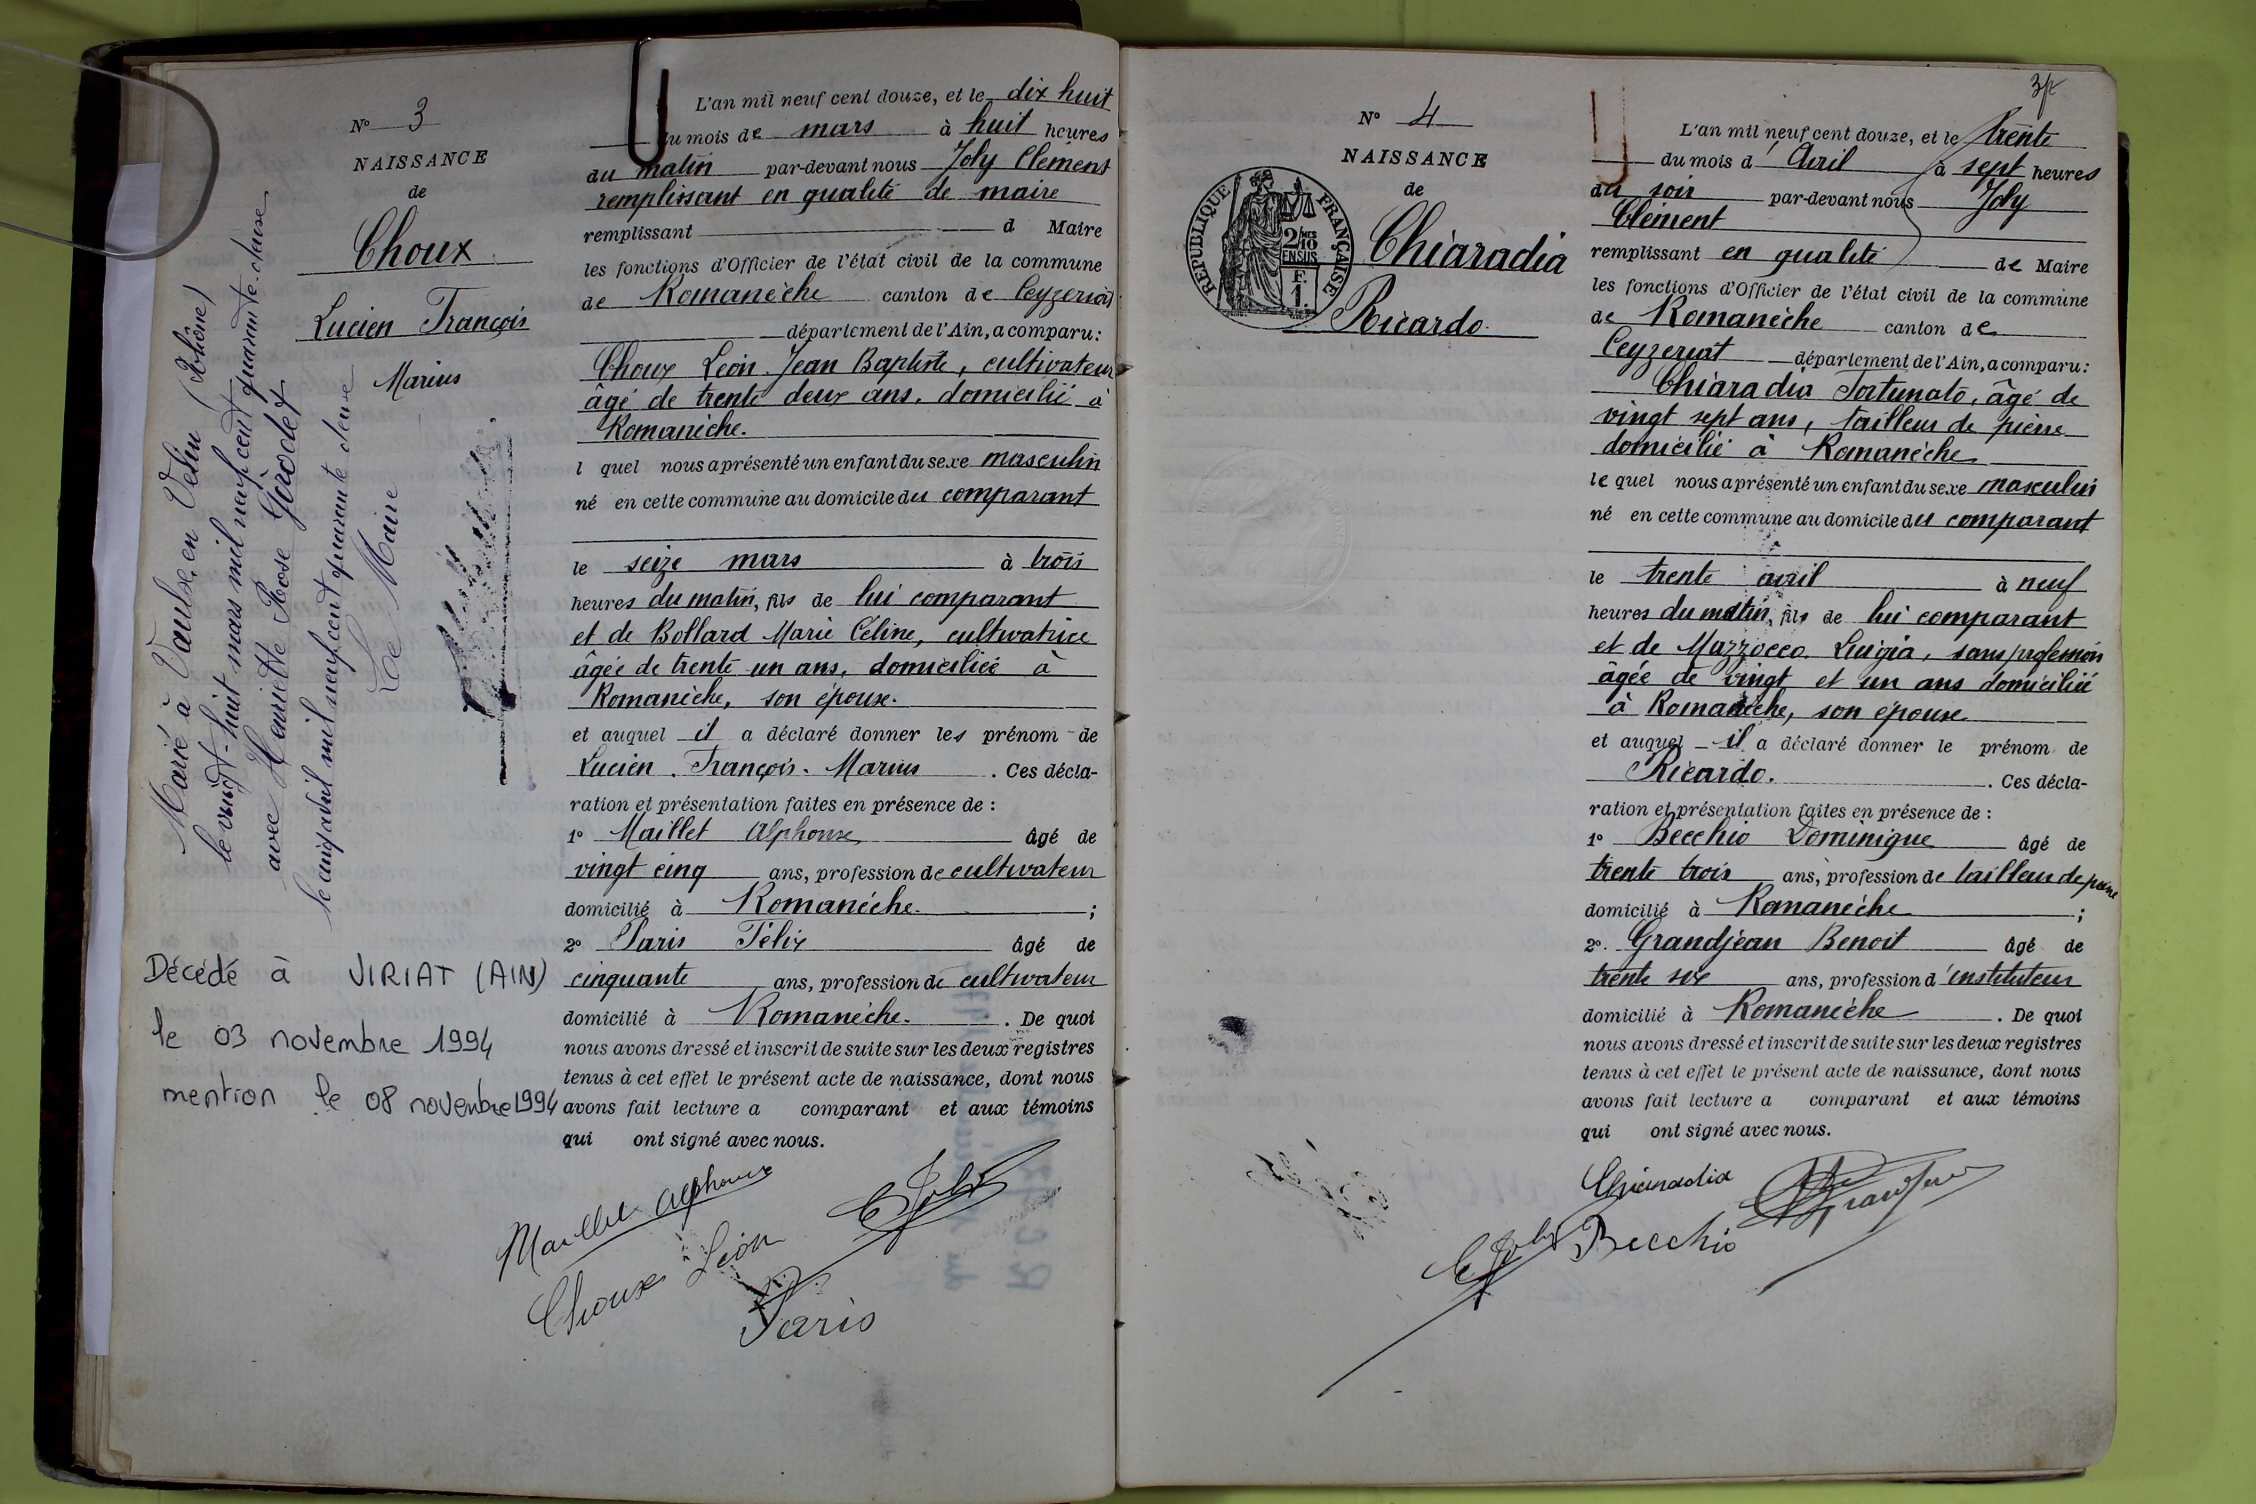 N° 3
NAISSANCE
de
Choux
Lucien François
Marius
Marié à Vaulx en Velin (Rhône)
le vingt-huit mars mil neuf cent quarante deux
avec Henriette Rose Girodet
le cinq avril mil neuf cent quarante deux
Le Maire
Décédé à VIRIAT (AIN)
le 03 novembre 1994
mention le 08 novembre 1994
L'an mil neuf cent douze, et le dix huit
du mois de mars à huit heures
du matin par-devant nous Joly Clément
remplissant en qualité de maire
remplissant d Maire
les fonctions d'Officier de l'état civil de la commune
de Romanèche canton de Ceyzériat
département de l'Ain, a comparu:
Choux Léon Jean Baptiste, cultivateur
âgé de trente deux ans, domicilié à
Romanèche.
l quel nous a présenté un enfant du sexe masculin
né en cette commune au domicile du comparant
le seize mars à trois
heures du matin, fils de lui comparant
et de Bollard Marie Céline, cultivatrice
âgée de trente un ans, domiciliée à
Romanèche, son épouse.
et auquel il a déclaré donner les prénom de
Lucien. François. Marius. Ces décla-
ration et présentation faites en présence de :
1° Maillet Alphonse âgé de
vingt cinq ans, profession de cultivateur
domicilié à Romanèche. ;
2° Paris Félix âgé de
cinquante ans, profession de cultivateur
domicilié à Romanèche. . De quoi
nous avons dressé et inscrit de suite sur les deux registres
tenus à cet effet le présent acte de naissance, dont nous
avons fait lecture a comparant et aux témoins
qui ont signé avec nous.
Maillet Alphonse
C Joly
Choux Léon
Paris
3
N° 4
NAISSANCE
de
Chiaradia
Ricardo
RÉPUBLIQUE FRANÇAISE
2/10 MES
EN SUS
F.
1.
L'an mil neuf cent douze, et le trente
du mois d'Avril à sept heures
du soir par-devant nous Joly
Clément
remplissant en qualité de Maire
les fonctions d'Officier de l'état civil de la commune
de Romanèche canton de
Ceyzériat département de l'Ain, a comparu:
Chiaradia Fortunato, âgé de
vingt sept ans, tailleur de pierre
domicilié à Romanèche
le quel nous a présenté un enfant du sexe masculin
né en cette commune au domicile du comparant
le trente avril à neuf
heures du matin, fils de lui comparant
et de Mazzocco Luigia, sans profession
âgée de vingt et un ans domiciliée
à Romanèche, son épouse
et auquel il a déclaré donner le prénom de
Ricardo. . Ces décla-
ration et présentation faites en présence de :
1° Becchio Dominique âgé de
trente trois ans, profession de tailleur de pierre
domicilié à Romanèche ;
2° Grandjean Benoit âgé de
trente six ans, profession d'instituteur
domicilié à Romanèche . De quoi
nous avons dressé et inscrit de suite sur les deux registres
tenus à cet effet le présent acte de naissance, dont nous
avons fait lecture a comparant et aux témoins
qui ont signé avec nous.
Chiaradia
C Joly Becchio